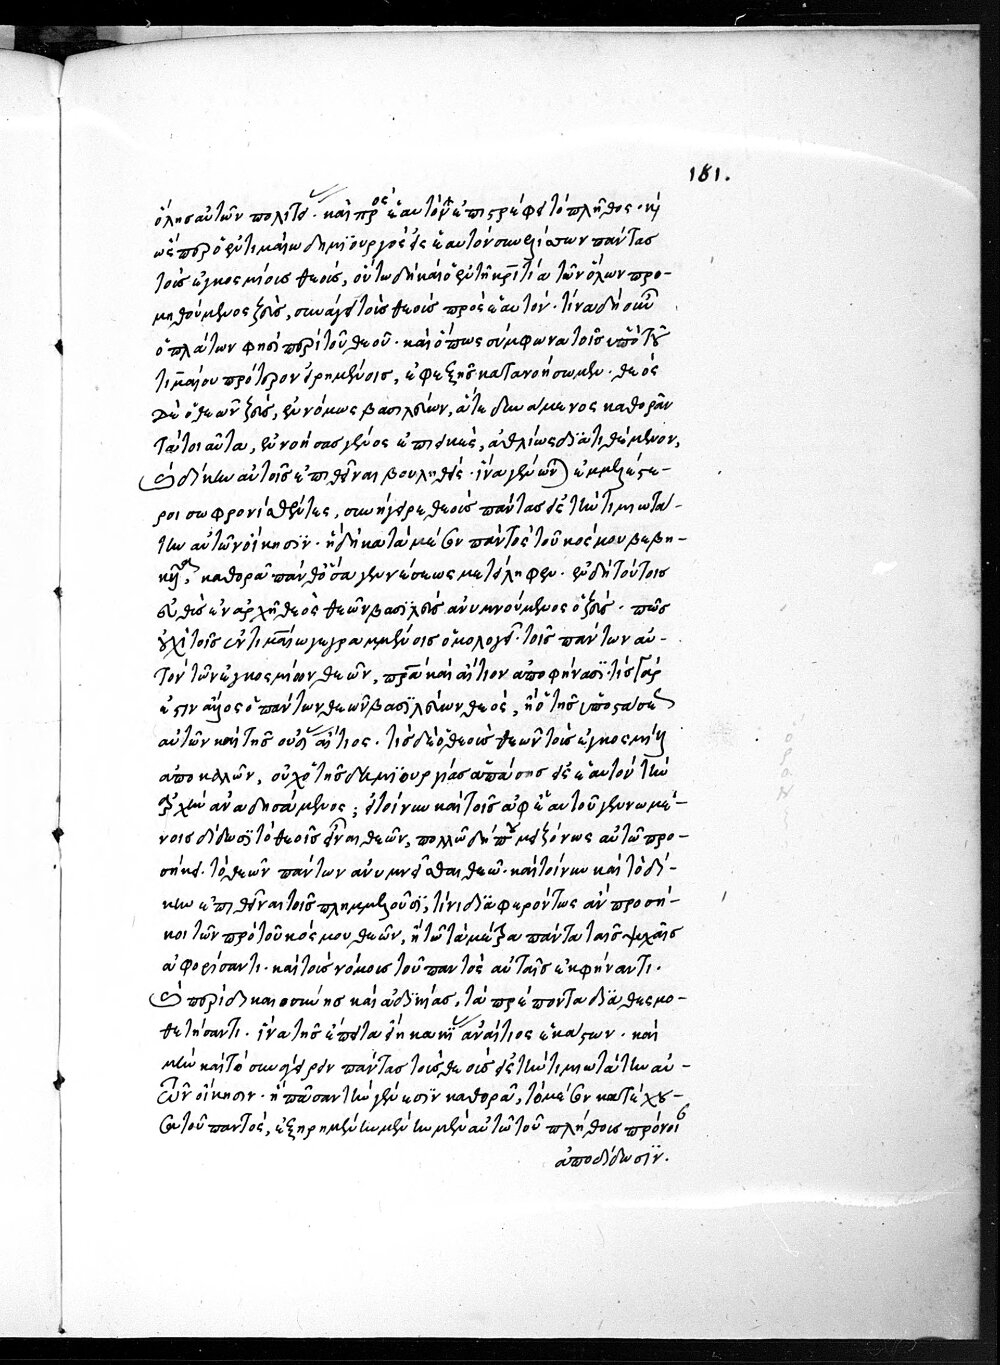 181.
ὅλης αὐτῶν πολιτεί. καὶ πρὸς ἑαυτὸν ἐπιστρέφει τὸ πλῆθος. καὶ
ὥσπερ ὁ ἐν τιμαίω δημϊουργὸς εἰς ἑαυτὸν πάντας
τοὺς ἐγκοσμίους θεούς, οὕτω δὴ καὶ ὁ ἐν τῆ κριτία τῶν ὅλων προ-
μηθούμενος ζεὺς, συνάγει τοὺς θεοὺς πρὸς ἑαυτόν. τίνα δὴ οὖν
ὁ πλάτων φησὶ περὶ τοῦ θεοῦ. καὶ ὅπως σύμφωνα τοῖς ὑπὸ τοῦ
τιμαίου πρότερον εἰρημένοις, ἐφεξῆς κατανοήσωμεν. θεὸς
δὲ ὁ θεῶν ζεὺς, ἐν νόμοις βασιλεύων, ἅτε δυνάμενος καθορᾶν
τὰ τοιαῦτα, ἐννοήσας γένος ἐπιεικὲς, ἀθλίως διατιθέμενον,
δίκην αὐτοῖς ἐπιθεῖναι βουληθεὶς. ἵνα γένωνται ἐμμελέστε-
ροι σωφρονισθέντες, συνήγειρε θεοὺς πάντας εἰς τὴν τιμιωτά-
την αὐτῶν οἴκησϊν. ἣ δὴ κατὰ μέσον παντὸς τοῦ κόσμου βεβη-
κυῖα, καθορᾶ πάνθ' ὅσα γενέσεως μετείληφεν. ἐν δὴ τούτοις
εὐθὺς ἐν ἀρχῆ θεὸς θεῶν βασϊλεὺς ἀνυμνούμενος ὁ ζεὺς. πῶς
οὐχὶ τοῖς ἐν τιμαίω γεγραμμένοις ὁμολογεῖ. τοῖς πάντων αὐ-
τὸν τῶν ἐγκοσμίων θεῶν, πατέρα καὶ αἴτιον ἀποφήνασϊ. τίς γάρ
ἐστιν ἄλλος ὁ πάντων θεῶν βασϊλεύων θεὸς, ἢ ὁ τῆς ὑποστάσεως
αὐτῶν καὶ τῆς οὐσίας αἴτιος. τίς δὲ ὁ θεοὺς θεῶν τοὺς ἐγκοσμίους
ἀποκαλῶν, οὐχ ὁ τῆς δημϊουργίας ἁπάσης εἰς ἑαυτὸν τὴν
ἀρχὴν ἀναδησάμενος; εἰ τοίνυν καὶ τοῖς ἀφ' ἑαυτοῦ γενομέ-
νοις δίδωσϊ τὸ θεοῖς εἶναι θεῶν, πολλῶ δήπου μειζόνως αὐτῶ προ-
σήκει. τὸ θεῶν πάντων ἀνυμνεῖσθαι θεῶ. καὶ τοίνυν καὶ τὸ δί-
κην ἐπιθεῖναι τοῖς πλημμελοῦσϊ, τίνι διαφερόντως ἂν προσή-
κοι τῶν πρὸ τοῦ κόσμου θεῶν, ἢ τῶ τὰ μέτρα πάντα ταῖς ψυχαῖς
ἀφορίσαντι. καὶ τοὺς νόμους τοῦ παντὸς αὐταῖς ἐκφήναντι.
περὶ δικαιοσύνης καὶ ἀδϊκίας, τὰ πρέποντα διαθεσμο-
θετήσαντι. ἵνα τῆς ἔπειτα εἴη κακί ἀναίτιος ἑκάστων. καὶ
μὴν καὶ τὸ συναγείρειν πάντας τοὺς θεοὺς εἰς τὴν τιμιωτάτην αὐ-
τῶν οἴκησιν. ἣ πᾶσαν τὴν γένεσϊν καθορᾶ, τὸ μέσον κατέχου-
σα τοῦ παντὸς, ἐξηρημένην μὲν αὐτῶ τοῦ πλήθους πρόνοι
ἀποδίδωσϊν.